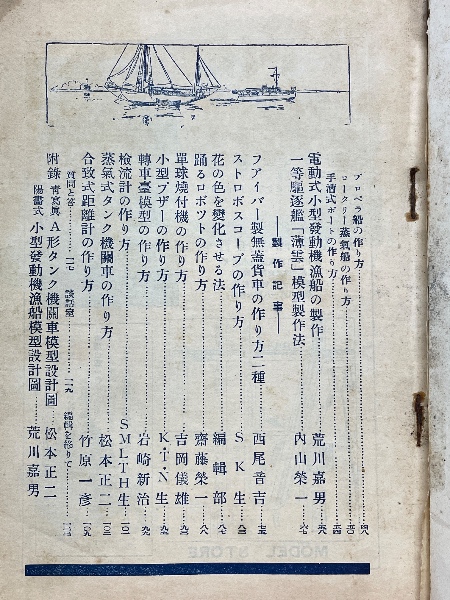 プロペラ船の作り方……………四八
ロータリー蒸氣船の作り方……………五〇
手漕式ボートの作り方……………五四
電動式小型發動機漁船の製作……………荒川嘉男……五八
一等驅逐艦「薄雲」模型製作法……………內山榮一……六七
——製作記事——
フアイバー製無蓋貨車の作り方二種……………西尾音吉……七五
ストロボスコープの作り方……………SK生……八四
花の色を變化させる法……………編輯部……八七
踊るロボツトの作り方……………齋藤榮一……八八
單球燒付機の作り方……………吉岡儀雄……九二
小型ブザーの作り方……………K・I・N生……九六
轉車臺模型の作り方……………岩崎新治……九九
檢流計の作り方……………SMLTH生……一〇一
蒸氣式タンク機關車の作り方……………松本正二……一〇三
合致式距離計の作り方……………竹原一彥……一〇九
質問と答……………一一七 談話室……………一一九 編輯を終りて……………一二〇
附錄 靑寫眞 A形タンク機關車模型設計圖……松本正二
陽畫式 小型發動機漁船模型設計圖……荒川嘉男
MODEL STORE